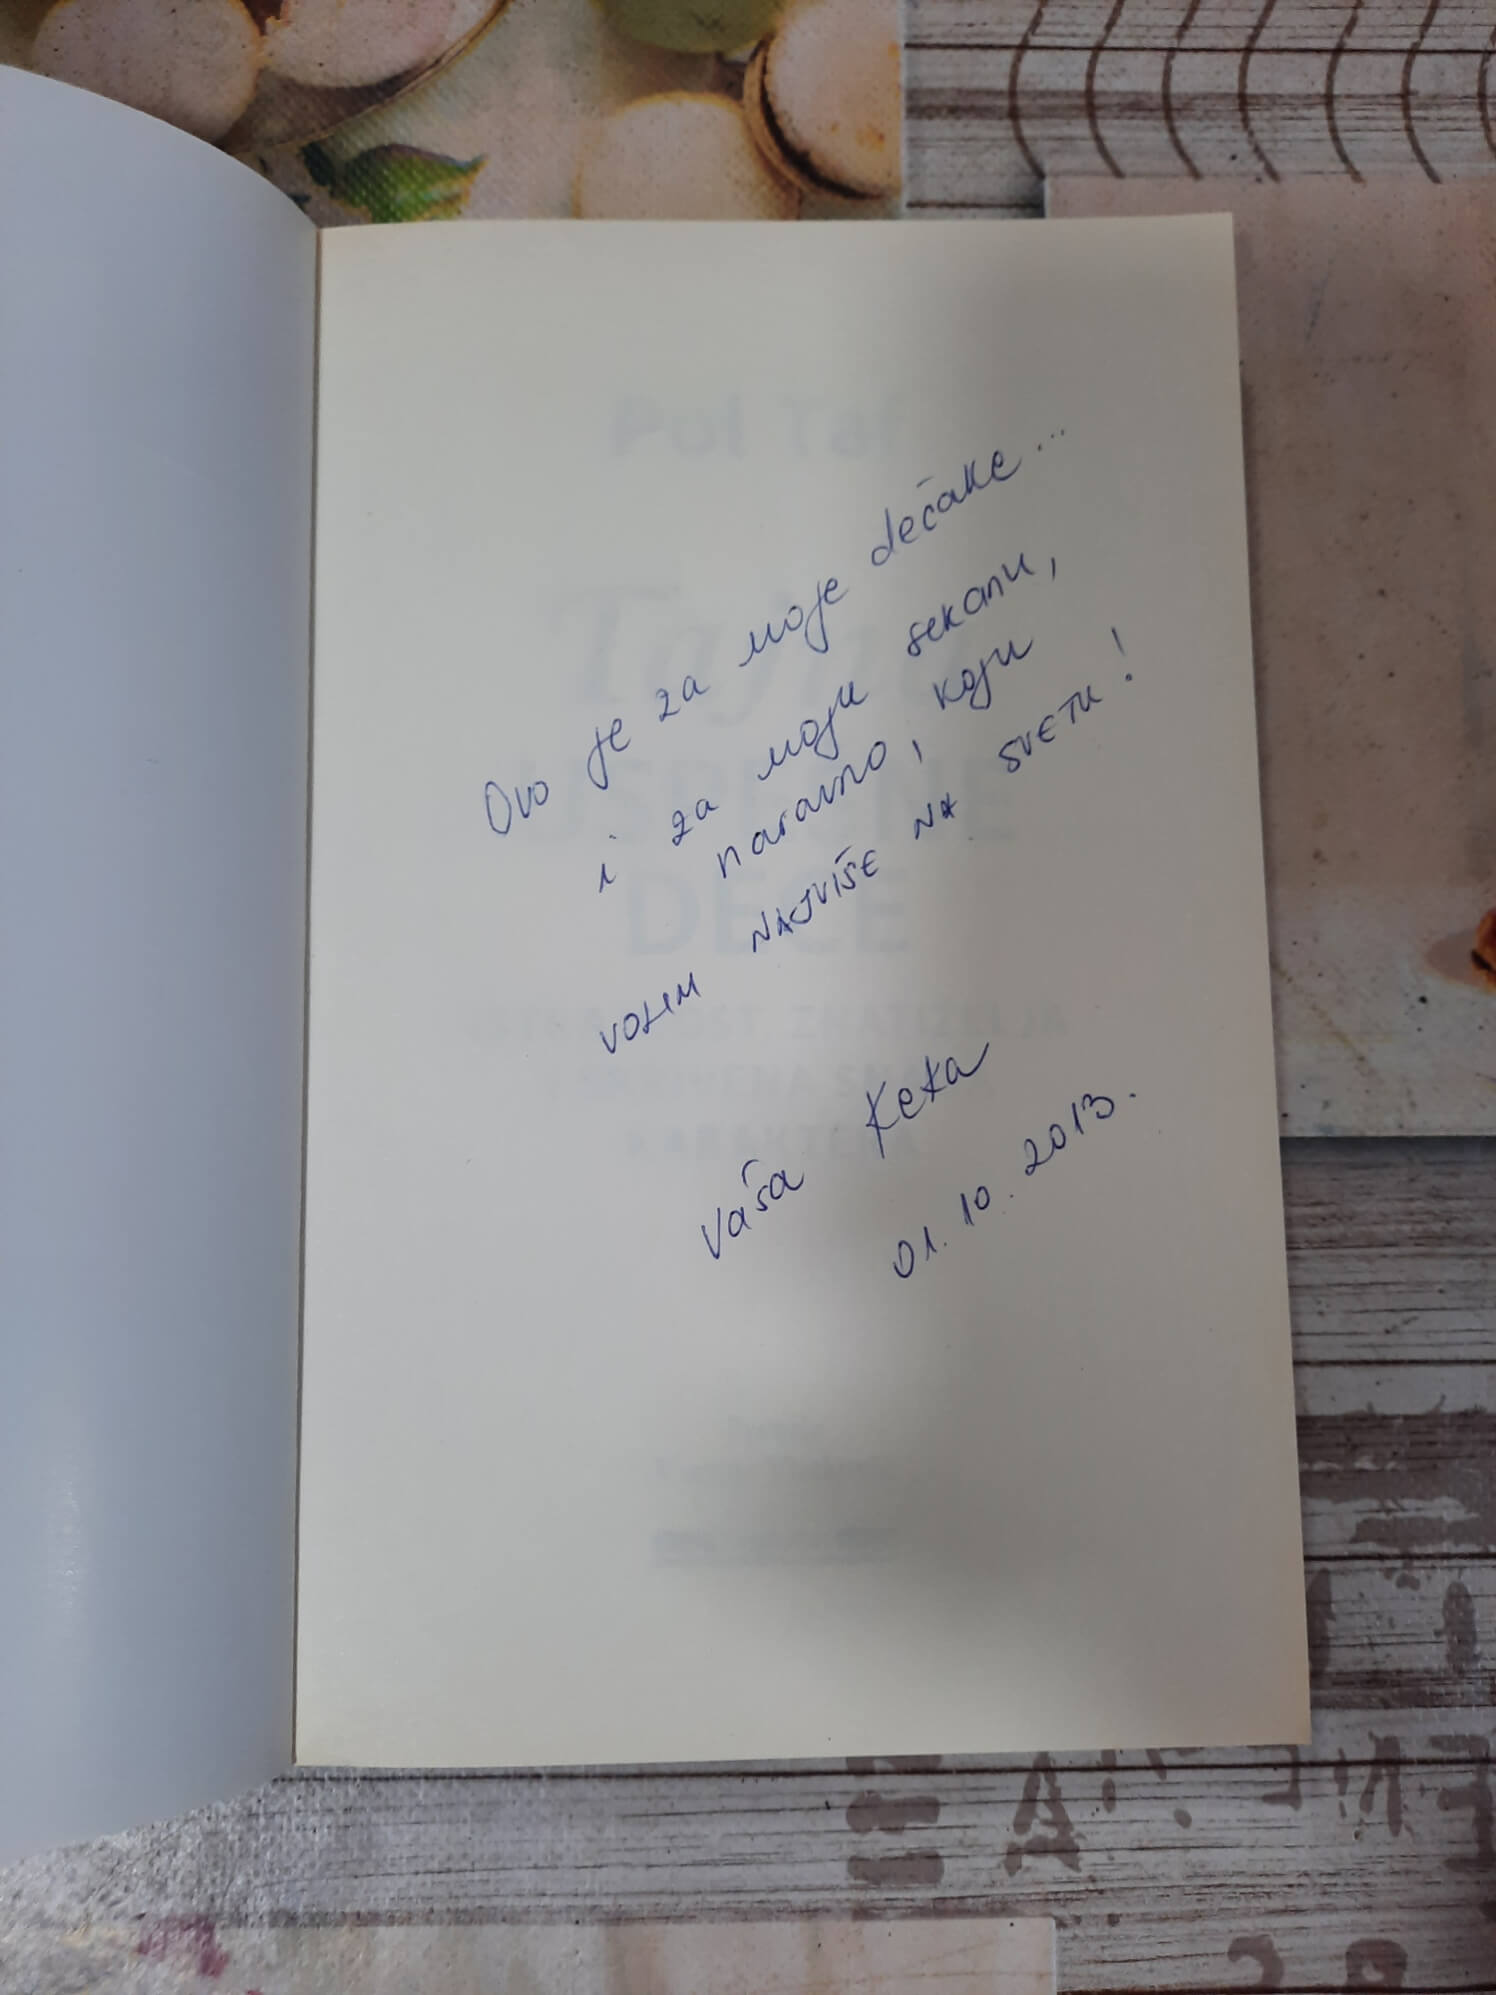 Ovo je za moje dečake...
i za moju sekanu,
naravno, koju
VOLIM NAJVIŠE NA SVETU!
Vaša Keka
01.10.2013.
Pol Taf
DECE
KARAKTERA